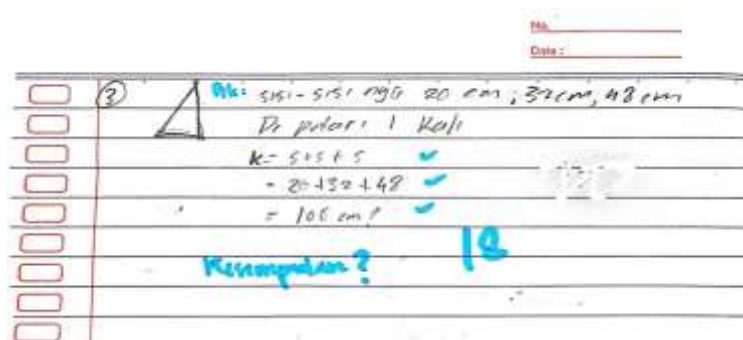 No.
Date :
③ Dik: sisi-sisi nya 20 cm, 32 cm, 48 cm
Di putari 1 kali
k = s+s+s
= 20+32+48
= 100 cm
18
Kesimpulan?